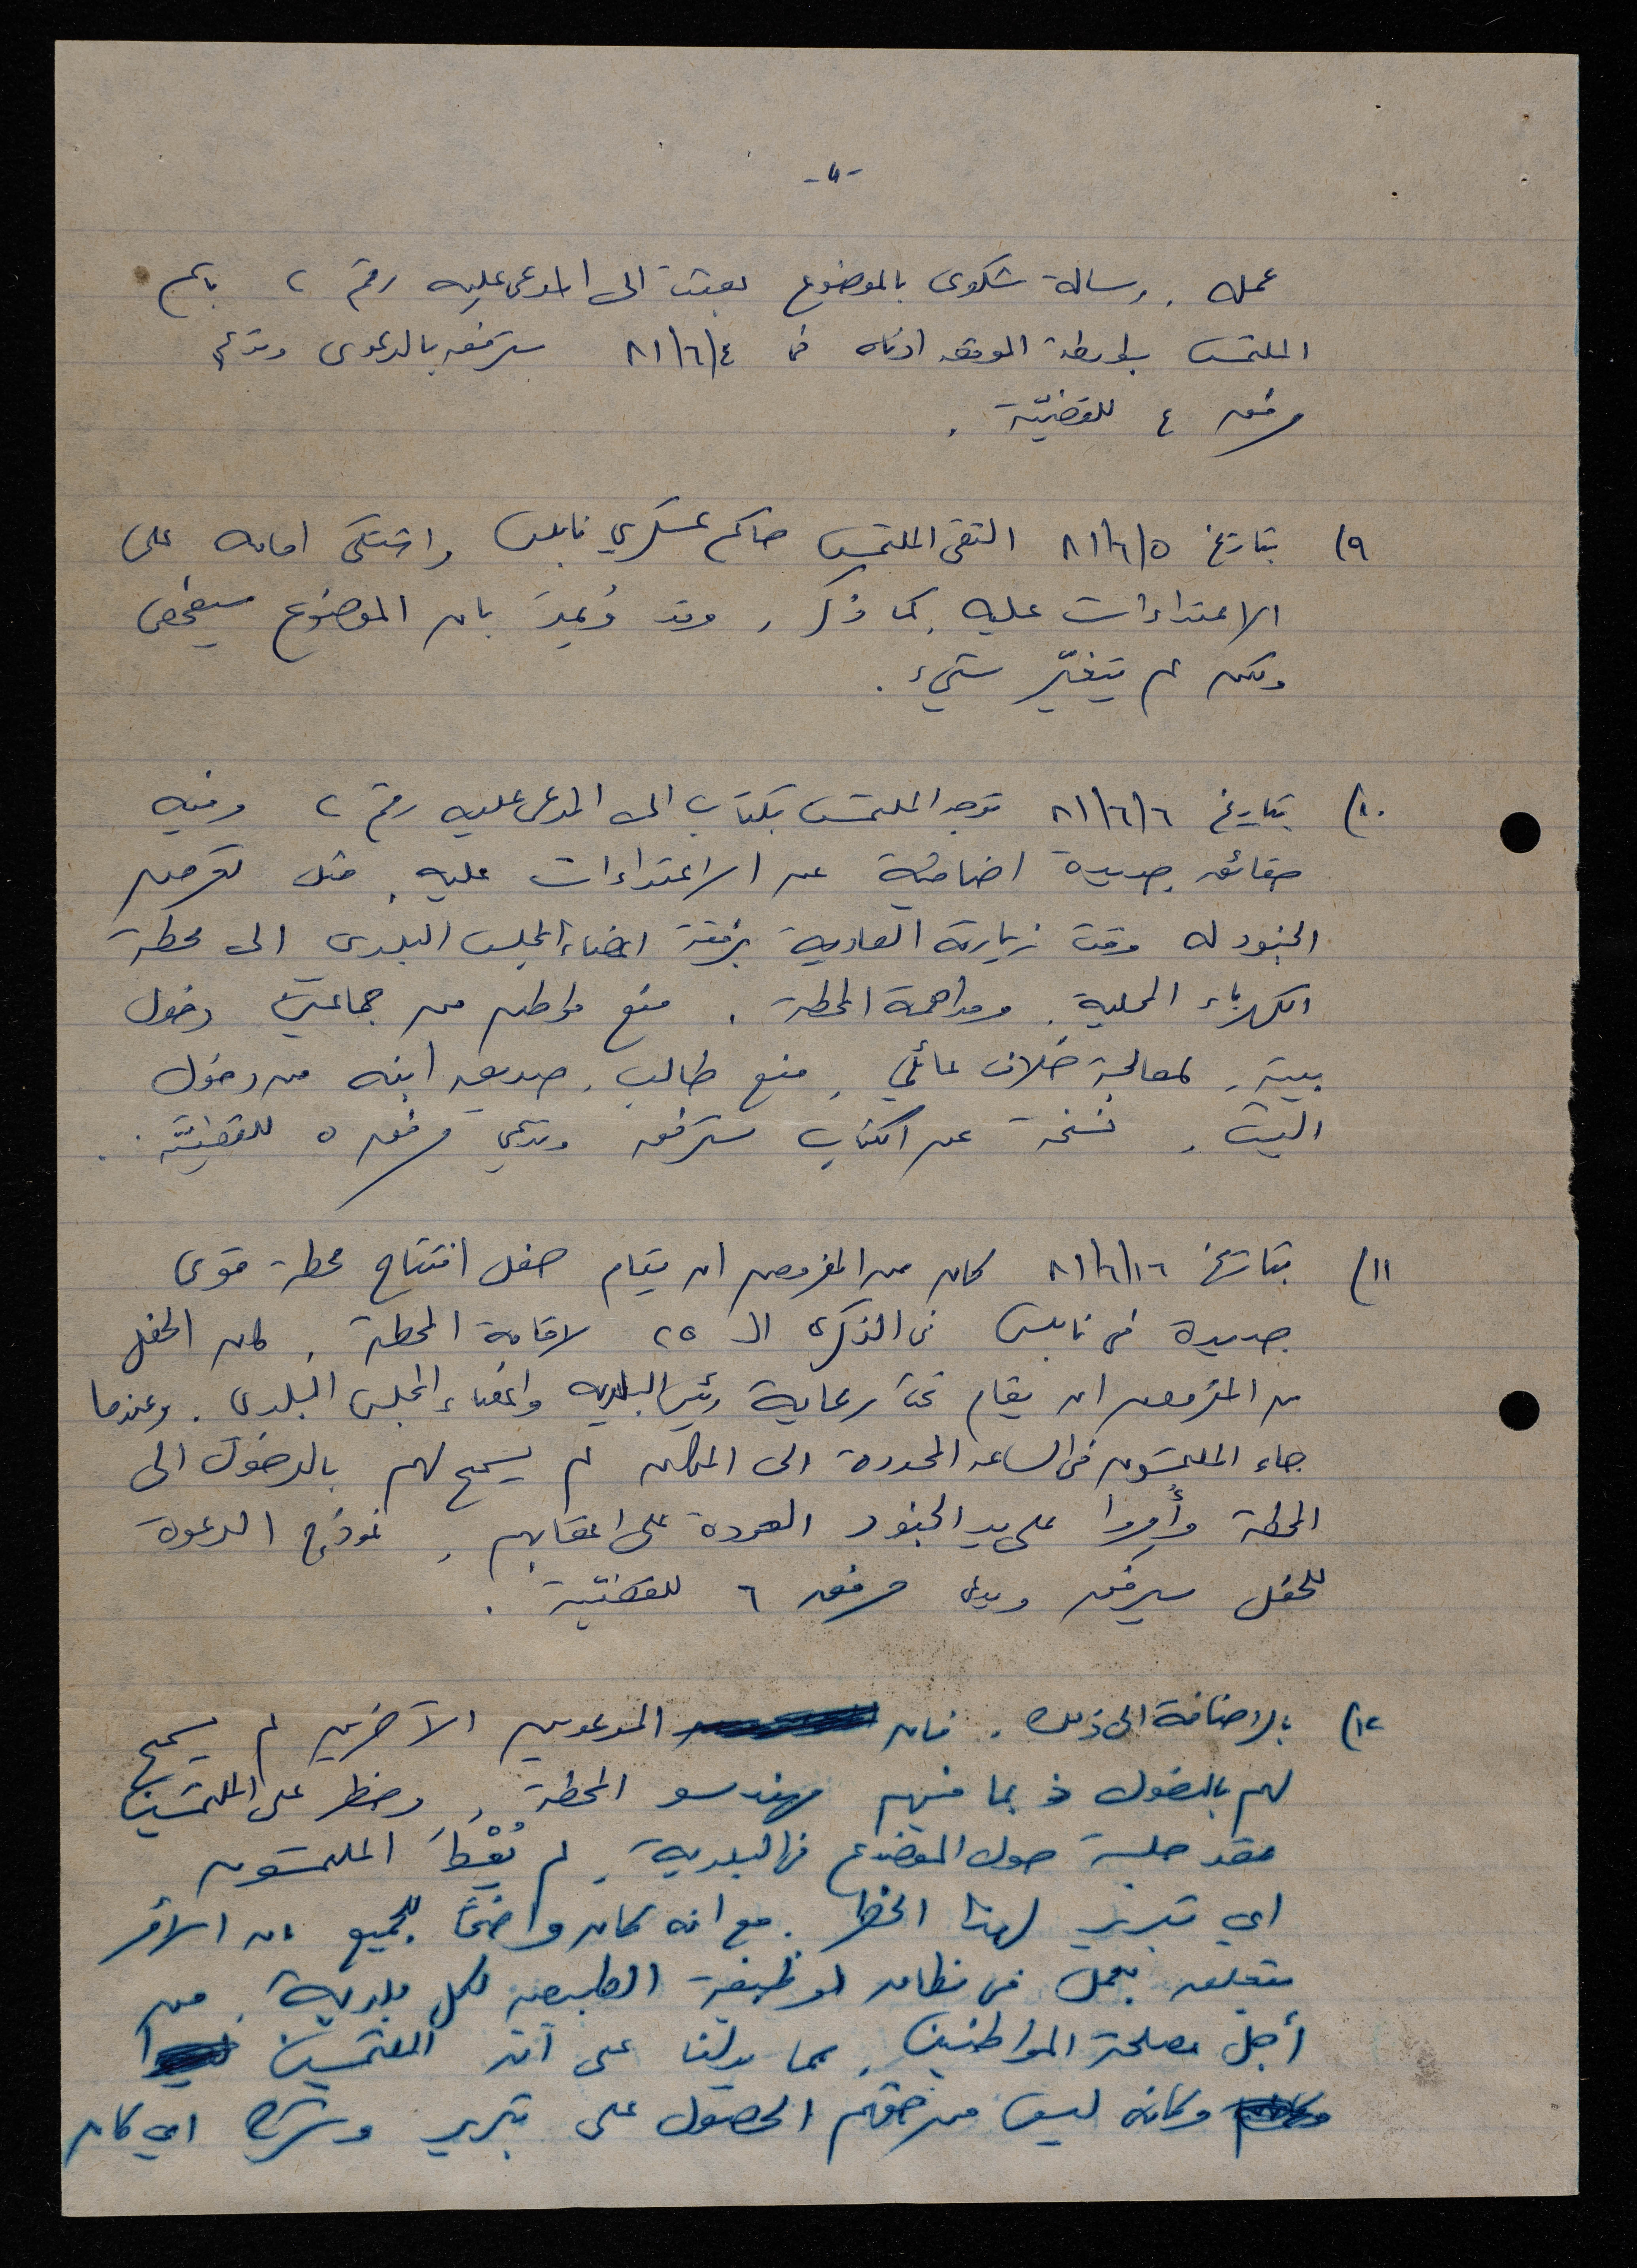 -٤-
عمله. رسالة شكوى بالموضوع بعثت الى المدعى عليه رقم ٢ باسم
الملتمس بواسطة الموقعه ادناه في ٨١/٦/٤ سترفق بالدعوى وتدعى
مرفق ٤ للقضيّة.
٩) بتاريخ ٨١/٦/٥ التقى الملتمس حاكم عسكري نابلس واشتكى امامه على
الاعتداءات عليه، كما ذكر، وقد وُعِدَ بان الموضوع سيفحص
ولكن لم يتغيّر شيء.
١٠) بتاريخ ٨١/٦/٦ توجه الملتمس بكتاب الى المدعى عليه رقم ٢ وفيه
حقائق جديدة اضافية عن الاعتداءات عليه، مثل تعرض
الجنود له وقت زيارته العادية برفقة اعضاء المجلس البلدي الى محطة
الكهرباء المحلية، ومداهمة المحطة. منع مواطن من دخول
بيته، لمعالجة خلاف عائلي، منع طالب، صديق ابنه من دخول
البيت. نسخة عن الكتاب سترفق وتدعى مرفق ٥ للقضيّة.
١١) بتاريخ ٨١/٦/١٦ كان من المفروض ان يقام حفل افتتاح محطة قوى
جديدة في نابلس في الذكرى الـ ٢٥ لاقامة المحطة. كان الحفل
من المفروض ان يقام تحت رعاية رئيس البلدية واعضاء المجلس البلدي. وعندما
جاء الملتمسون في الساعه المحددة الى المكان لم يسمح لهم بالدخول الى
المحطة وأُمروا على يد الجنود العودة على اعقابهم. نموذج الدعوة
للحفل سيرفق ويدعى مرفق ٦ للقضيّة.
١٢) بالاضافة الى ذلك. فان المدعوين الآخرين لم يسمح
لهم بالدخول بما فيهم مهندسو المحطة، وحظر على الملتمسين
عقد جلسة حول الموضوع في البلدية. لم يُعْطَ الملتمسون
اي تبرير لهذا الحظر. مع انه كان واضحًا للجميع ان الأمر
متعلق بعمل في نطاق الوظيفة الطبيعيه لكل بلدية، من
أجل مصلحة المواطنين. مما يدلنا على ان الملتمسين
وكانه ليس من حقهم الحصول على تبرير وشرح اي كان